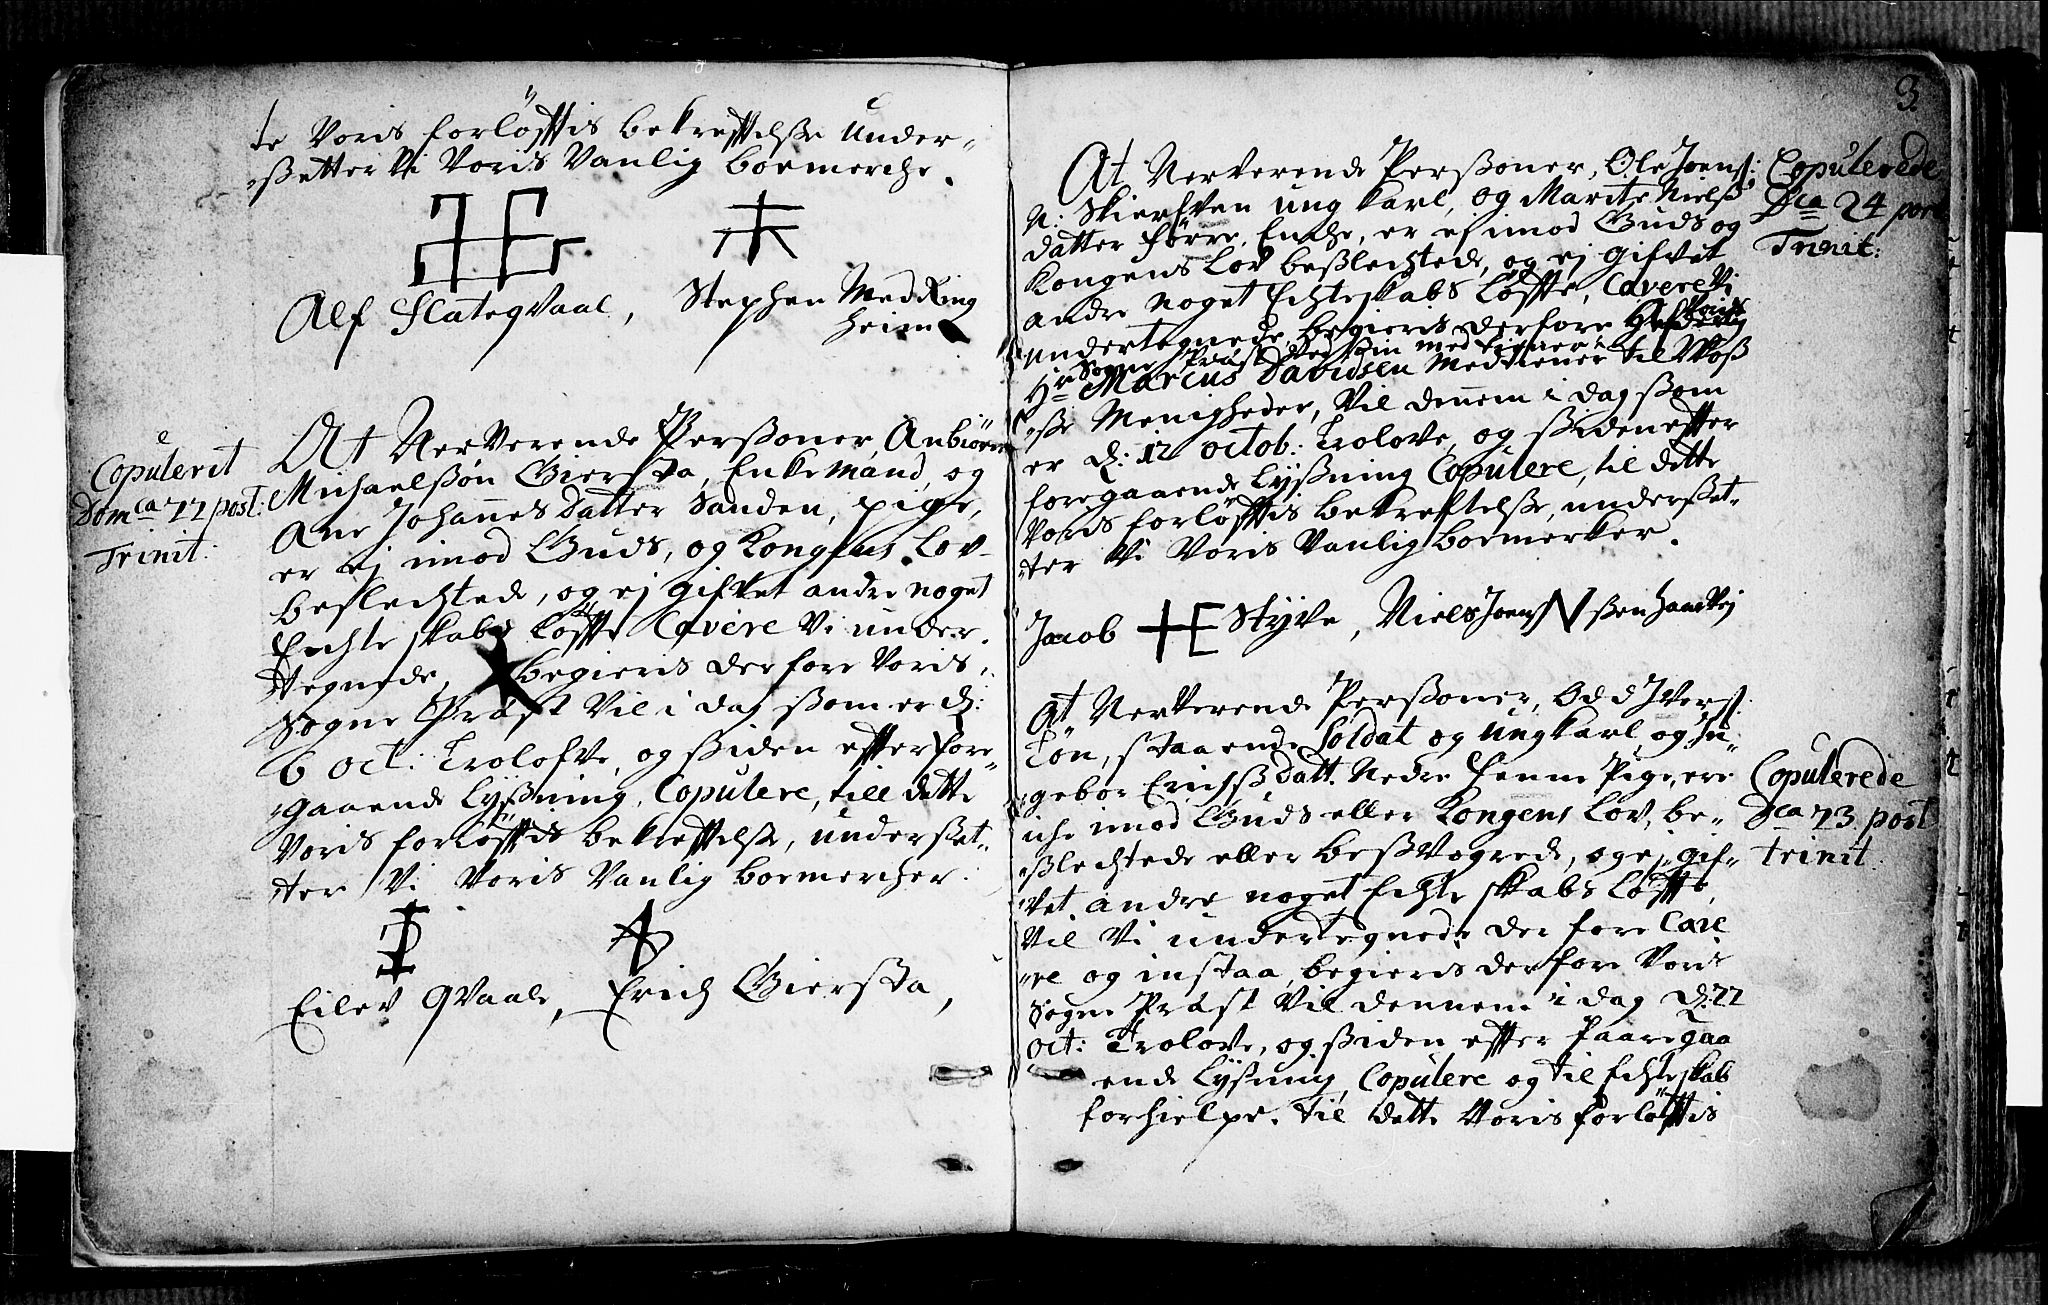 te Voris forløfftis bekrefftelße under-
ßetter Vi Voris Vanlig boemerche.
Alf Slateqvaal, Stephen Medring
heim
Copulerit
Domca 22 post:
Trinit:
At Nerverende Perßoner, Anbiörn
Michaelßøn Giersta, Enkemand, og
Ane Johannes Datter Sanden, pige,
er ej imod Guds, og Kongens Lov
beslechtede, og ej gifvet andre noget
Echteskabs løffte Cavere Vi under-
tegnede, begieris derfore Voris
Sogne Præst Vil i dag ßom er d:
6 Oct: Trolofve, og ßiden effter fore-
gaaende Lyßning, Copulere, till dette
Voris forløfftis bekrefftelße, underßet-
ter Vi Voris Vanlig boemercher.
Eilev Qvaale, Erich Giersta,
3
At Nerverende Perßoner, Ole Joens:
N: Skierfven ung karl, og Marite Nielß
datter Førre, Enche, er ej imod Guds og
Kongens Lov beßlechtede, og ej gifvet
andre noget Echteskabs løffte, Cavere Vi
undertegnede, begieris derfore Voris
Sogne Præst Ved ßin med tiener
Hr Marcus Davidsen Medtiener til Woß
ße Menigheder, Vil dennem i dag ßom
er d: 12 octob: Trolove, og ßiden effter
foregaaende Lyßning Copulere, til dette
Voris forløfftis bekreftelße, underßet-
ter Vi Voris Vanlig boemerker.
Copulerede
Dca 24 post
Trinit:
Jacob Styve, Niels Joens N ßen
At Nerverende Perßoner, Odd Iverß:
Tøn, staaende Soldat og Ungkarl, og In-
gebor Erichß datt. Nedre Fenne Pige, ere
iche imod Guds eller Kongens Lov, be-
ßlechtede eller beßvogrede, og ej gif-
vet andre noget Echteskabs løffte,
Vil Vi undertegnede der fore Cave
re og instaa, begieris derfore Voris
Sogne Præst Vil dennem i dag d: 22
Oct: Trolove, og ßiden effter faaregaa
ende Lyßning, Copulere og til Echteskab
forhielpe. til dette Voris forløfftis
Copulerede
Dca 23 post
trinit.